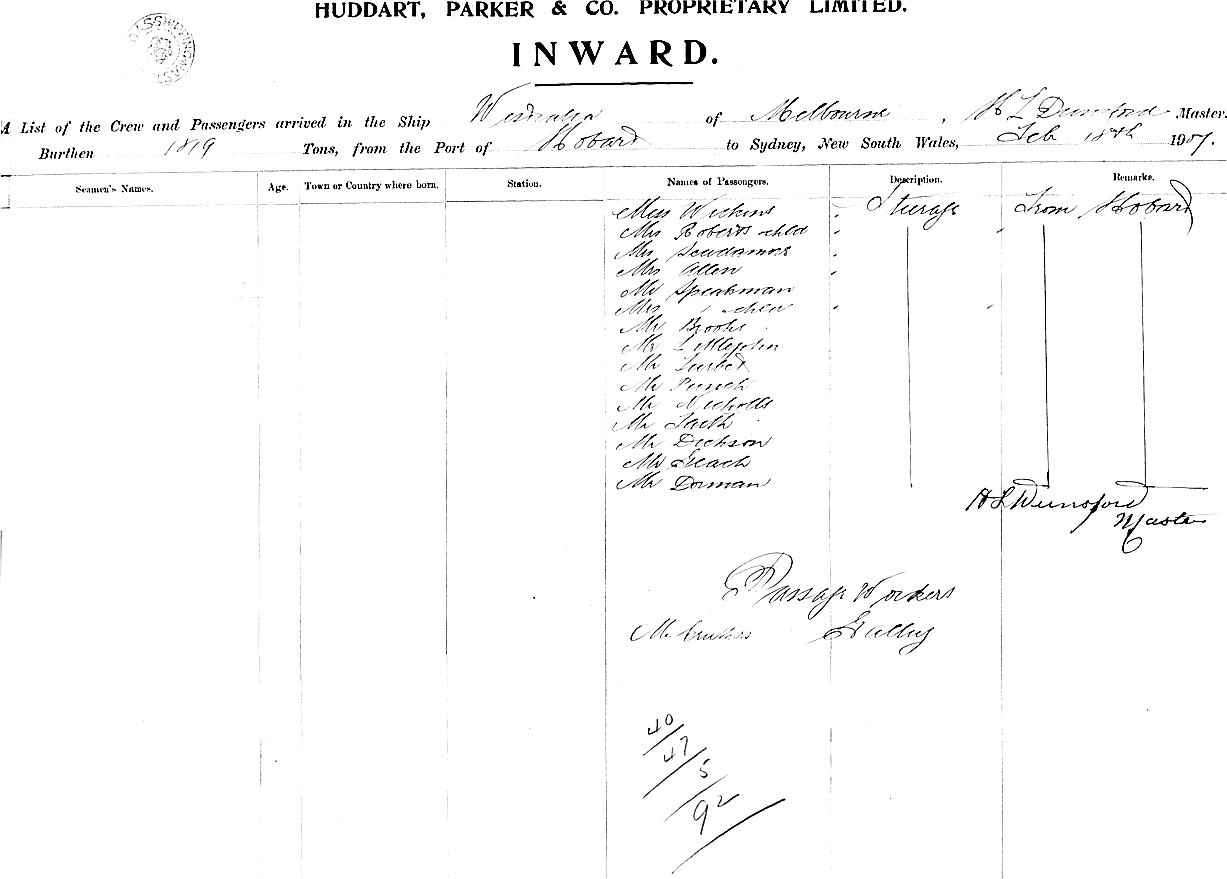 HUDDART, PARKER & CO. PROPRIETARY LIMITED.
INWARD.
A List of the Crew and Passengers arrived in the Ship Westralia of Melbourne, Master.
Burthen 1819 Tons, from the Port of Hobart to Sydney, New South Wales, Feb 18th 1907.
Seamen's Names. Age. Town or Country where born. Station. Names of Passengers. Description. Remarks.
Miss Wickins Steerage From Hobart
Mrs Roberts child
Mrs Scudamore
Mrs Allen
Mr Speakman
Mrs " child
Mr Brooks
Mr Littlejohn
Mr
Mr
Mr Nicholls
Mr
Mr Dickson
Mr Geach
Mr Dorman
Master
Passage Workers
Mr Galley
40
47
5
92